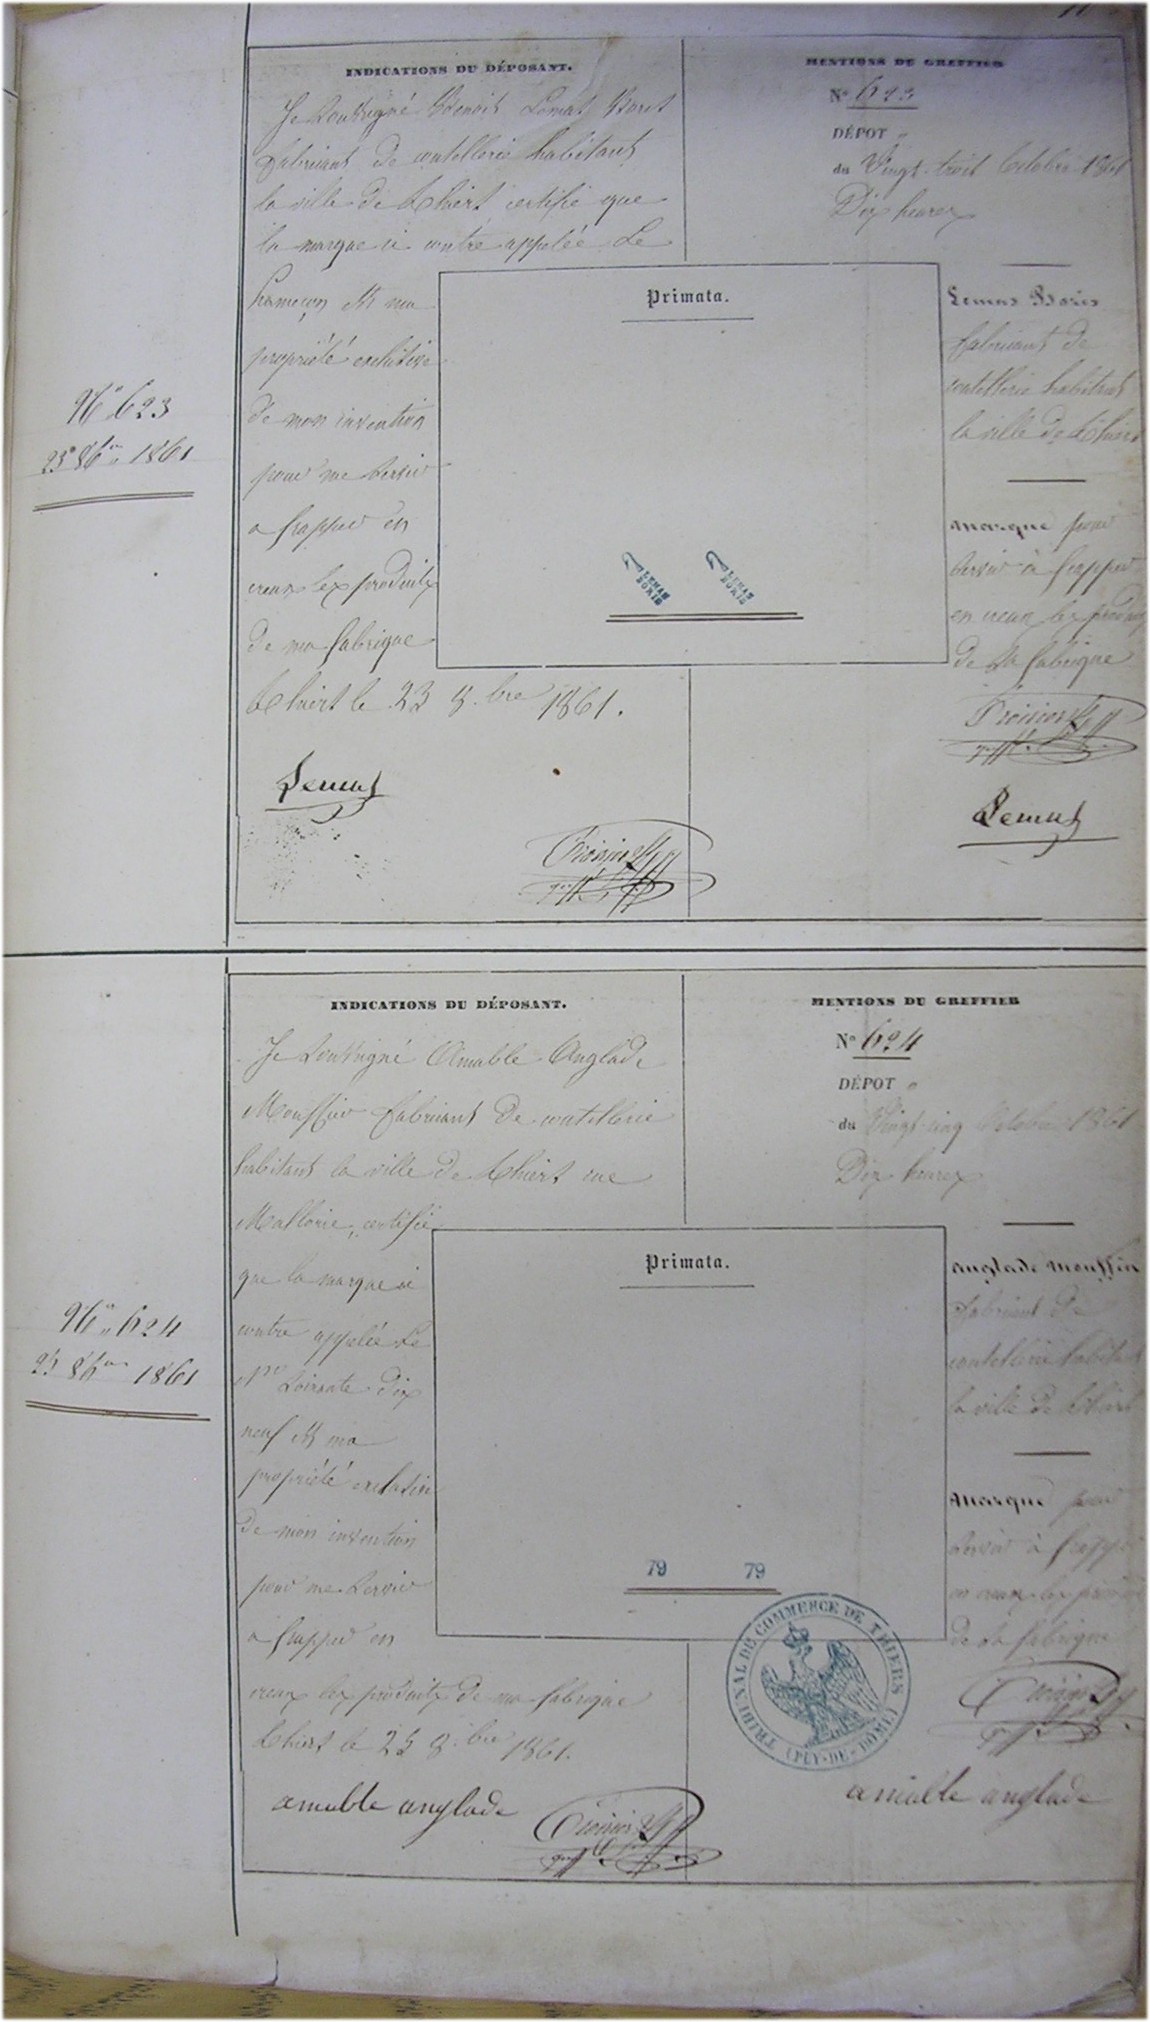 INDICATIONS DU DÉPOSANT.
Je soussigné Benoit Lemas Boris
fabricant de coutellerie habitant
la ville de Thiers certifie que
la marque ci contre appelée Le
hameçon est ma
propriété exclusive
de mon invention
pour me servir
a frapper en
creux les produits
de ma fabrique
Thiers le 23 8.bre 1861.
Lemas
MENTIONS DU GREFFIER
N° 623
DÉPOT
du Vingt trois Octobre 1861
Dix heures
Primata.
LEMAS
BORIS
LEMAS
BORIS
Lemas Boris
fabricant de
coutellerie habitant
la ville de Thiers
marque pour
servir à frapper
en creux les produits
de sa fabrique
Lemas
N° 623
23 8bre 1861
INDICATIONS DU DÉPOSANT.
Je soussigné Amable Anglade
fabricant de coutellerie
habitant la ville de Thiers rue
certifie
que la marque ci
contre appelée Le
N° soixante dix
neuf est ma
propriété exclusive
de mon invention
pour me servir
a frapper en
creux les produits de ma fabrique
Thiers le 25 8.bre 1861.
amable anglade
MENTIONS DU GREFFIER
N° 624
DÉPOT
du Vingt-cinq Octobre 1861
Dix heures
Primata.
79 79
TRIBUNAL DE COMMERCE DE THIERS
(PUY-DE-DOME)
anglade
fabricant de
coutellerie habitant
la ville de Thiers
marque pour
servir à frapper
en creux les produits
de sa fabrique
amable anglade
N° 624
25 8bre 1861